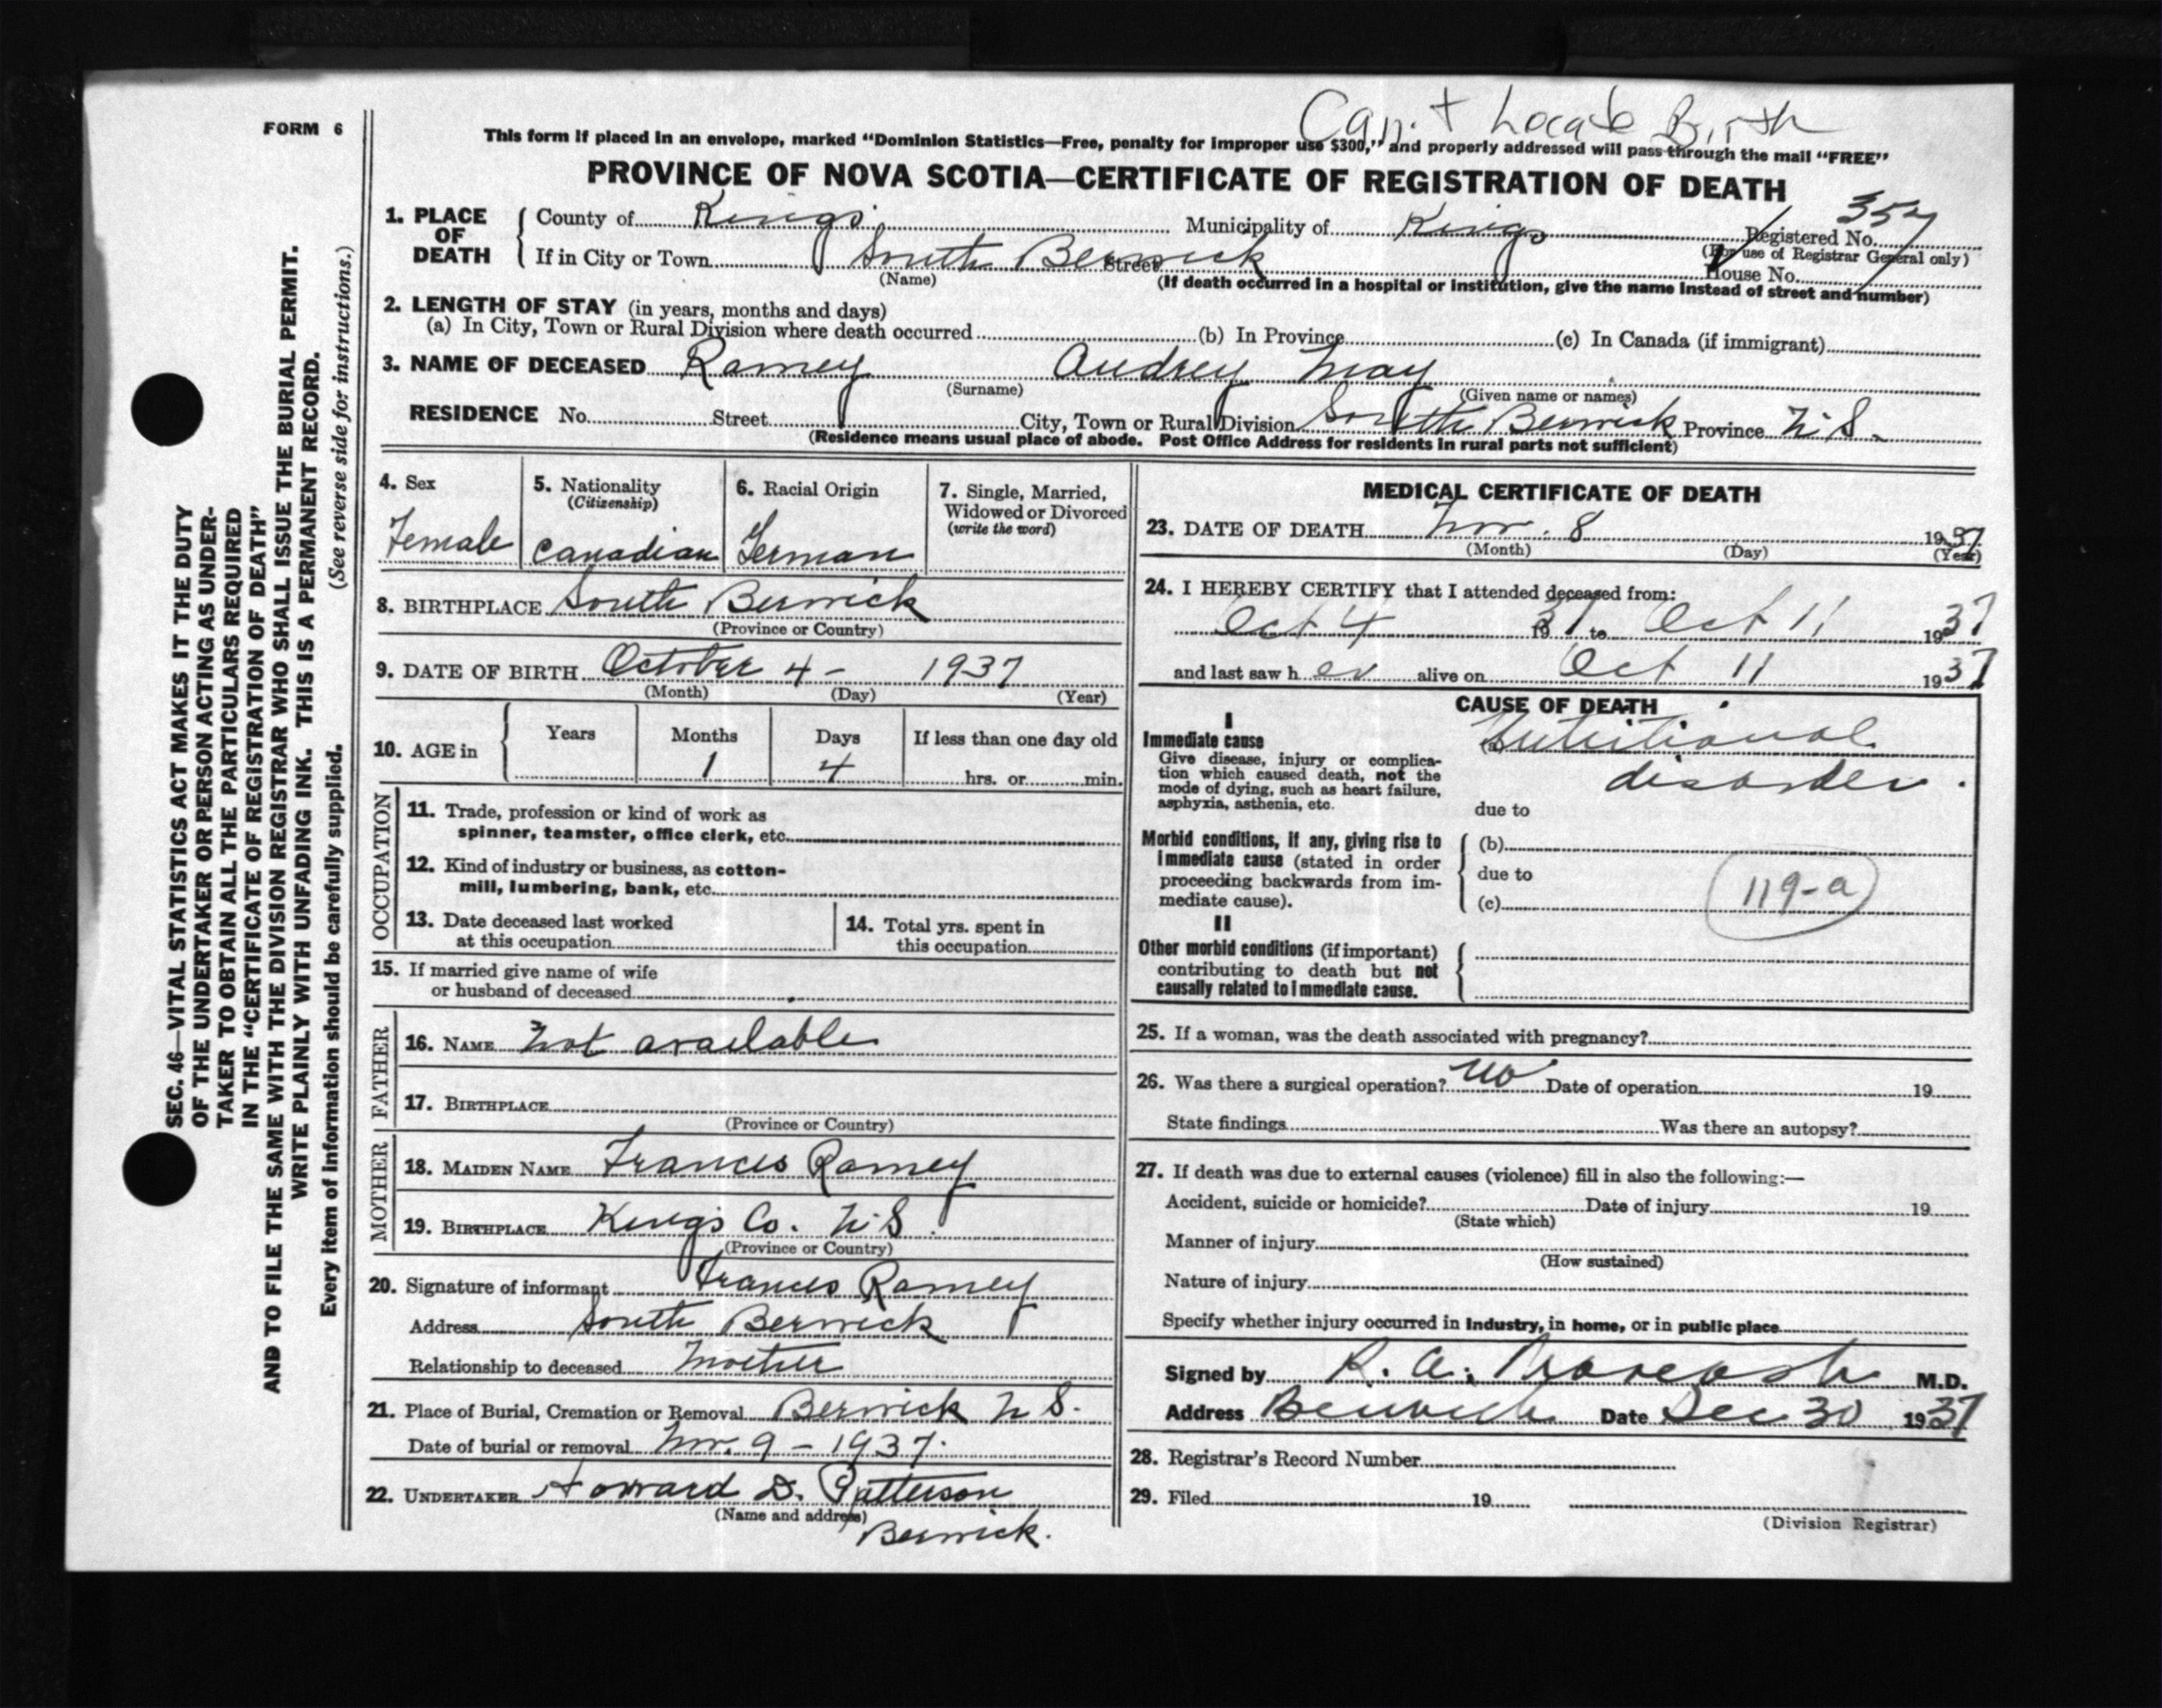 Can't Locate Birth
FORM 6
This form if placed in an envelope, marked "Dominion Statistics—Free, penalty for improper use $300," and properly addressed will pass through the mail "FREE"
PROVINCE OF NOVA SCOTIA—CERTIFICATE OF REGISTRATION OF DEATH
1. PLACE OF DEATH County of Kings Municipality of Kings Registered No. 357
(For use of Registrar General only)
If in City or Town South Berwick Street House No.
(Name) (If death occurred in a hospital or institution, give the name instead of street and number)
2. LENGTH OF STAY (in years, months and days)
(a) In City, Town or Rural Division where death occurred (b) In Province (c) In Canada (if immigrant)
3. NAME OF DECEASED Ramey Audrey May
(Surname) (Given name or names)
RESIDENCE No. Street City, Town or Rural Division South Berwick Province N.S.
(Residence means usual place of abode. Post Office Address for residents in rural parts not sufficient)
4. Sex
Female
5. Nationality
(Citizenship)
Canadian
6. Racial Origin
German
7. Single, Married,
Widowed or Divorced
(write the word)
8. BIRTHPLACE South Berwick
(Province or Country)
9. DATE OF BIRTH October 4 - 1937
(Month) (Day) (Year)
10. AGE in Years Months Days If less than one day old
1 4 hrs. or min.
OCCUPATION
11. Trade, profession or kind of work as
spinner, teamster, office clerk, etc.
12. Kind of industry or business, as cotton-
mill, lumbering, bank, etc.
13. Date deceased last worked
at this occupation
14. Total yrs. spent in
this occupation
15. If married give name of wife
or husband of deceased
FATHER
16. NAME Not available
17. BIRTHPLACE
(Province or Country)
MOTHER
18. MAIDEN NAME Frances Ramey
19. BIRTHPLACE Kings Co. N.S.
(Province or Country)
20. Signature of informant Frances Ramey
Address South Berwick
Relationship to deceased Mother
21. Place of Burial, Cremation or Removal Berwick N S.
Date of burial or removal Nov. 9 - 1937.
22. UNDERTAKER Howard D. Patterson
(Name and address)
Berwick.
MEDICAL CERTIFICATE OF DEATH
23. DATE OF DEATH Nov. 8 1937
(Month) (Day) (Year)
24. I HEREBY CERTIFY that I attended deceased from:
Oct 4 1937 to Oct 11 1937
and last saw her alive on Oct 11 1937
CAUSE OF DEATH
I
Immediate cause
Give disease, injury or complica-
tion which caused death, not the
mode of dying, such as heart failure,
asphyxia, asthenia, etc.
(a) Nutritional
disorder.
due to
Morbid conditions, if any, giving rise to
immediate cause (stated in order
proceeding backwards from im-
mediate cause).
(b)
due to
(c)
119-a
II
Other morbid conditions (if important)
contributing to death but not
causally related to immediate cause.
25. If a woman, was the death associated with pregnancy?
26. Was there a surgical operation? No Date of operation 19
State findings Was there an autopsy?
27. If death was due to external causes (violence) fill in also the following:—
Accident, suicide or homicide? Date of injury 19
(State which)
Manner of injury
(How sustained)
Nature of injury
Specify whether injury occurred in industry, in home, or in public place
Signed by R. A. M.D.
Address Berwick Date Dec 30 1937
28. Registrar's Record Number
29. Filed 19
(Division Registrar)
SEC. 46—VITAL STATISTICS ACT MAKES IT THE DUTY
OF THE UNDERTAKER OR PERSON ACTING AS UNDER-
TAKER TO OBTAIN ALL THE PARTICULARS REQUIRED
IN THE "CERTIFICATE OF REGISTRATION OF DEATH"
AND TO FILE THE SAME WITH THE DIVISION REGISTRAR WHO SHALL ISSUE THE BURIAL PERMIT.
WRITE PLAINLY WITH UNFADING INK. THIS IS A PERMANENT RECORD.
Every item of information should be carefully supplied. (See reverse side for instructions.)